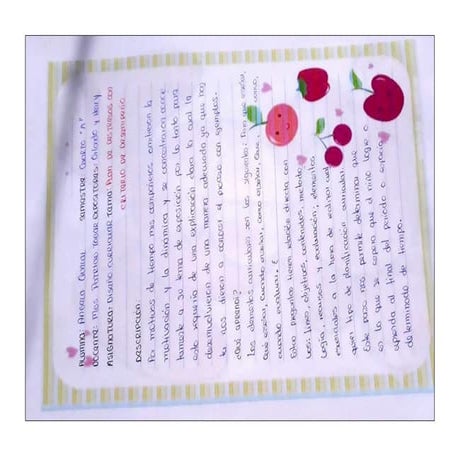 Alumna: Angela Casnal Semestre: Cuarto "A"
Docente: Mgs. Patricio Tobar Expositoras: Erlinda y Mary
Asignatura: Diseño curricular Tema: Plan de destrezas con
criterio de desempeño
Descripción:
Por motivos de tiempo mis compañeras omitieron la
motivación y la dinámica y se concentraron
a su tema de exposición por lo tanto para
este requería de una explicación clara la cual la
desenvolvieron de una manera adecuada ya que hoy
la nos dieron a conocer el proceso con ejemplos.
¿Qué aprendí?
Los elementos curriculares son los siguientes: Para que enseñar,
Que enseñar, Cuando enseñar, como enseñar, Que, como,
cuando evaluar.
Estas preguntas tienen relación directa con
fines, objetivos, contenidos, metodo
logías, recursos y evaluación, elementos
esenciales a la hora de realizar cual
quier tipo de planificación curricular.
Este paso nos permite determinar que
es lo que se espera que el niño logre o
aprenda al final del periodo o espacio
determinado de tiempo.